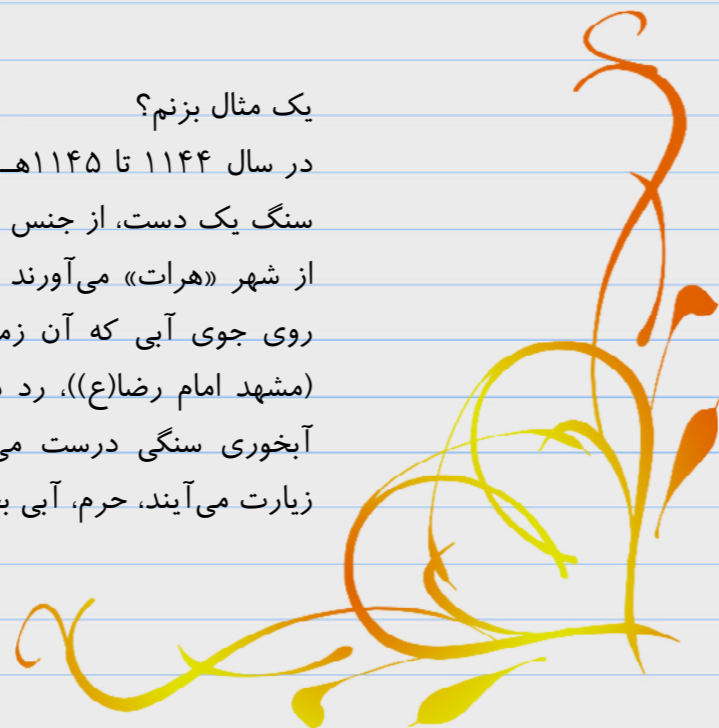 یک مثال بزنم؟
در سال ۱۱۴۴ تا ۱۱۴۵هـ
سنگ یک دست، از جنس
از شهر «هرات» می‌آورند
روی جوی آبی که آن
(مشهد امام رضا(ع))، رد
آبخوری سنگی درست
زیارت می‌آیند، حرم، آبی